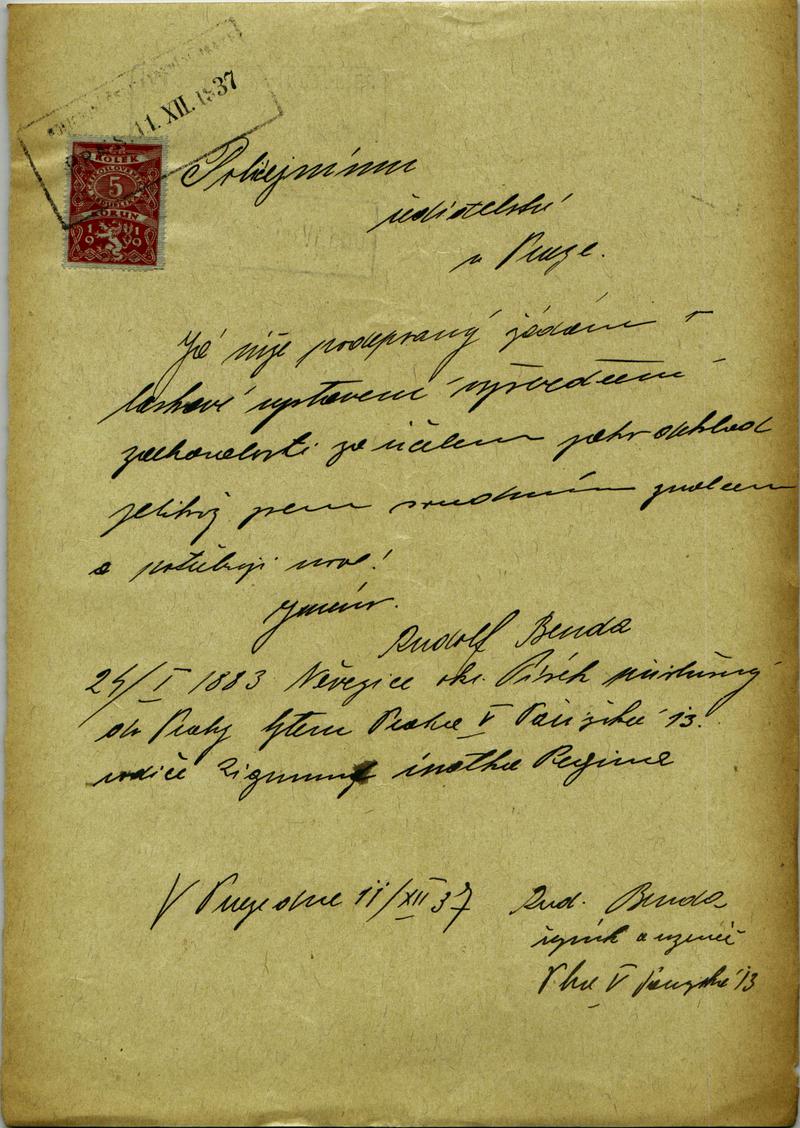 11. XII. 1937
KOLEK
5
KORUN
1919
Policejnímu
ředitelství
v Praze.
Já níže podepsaný žádám o
laskavé vystavení vysvědčení
zachovalosti za účelem
jelikož jsem soudním znalcem
a potřebuji nové!
Jméno.
Rudolf Benda
24/I 1883 Něvězice okr. Písek příslušný
do Prahy bytem Praha V Pařížská 13.
rodiče Zigmund matka Regina
V Praze dne 11/XII 37
Rud. Benda
řezník a uzenář
Pha V Pařížská 13